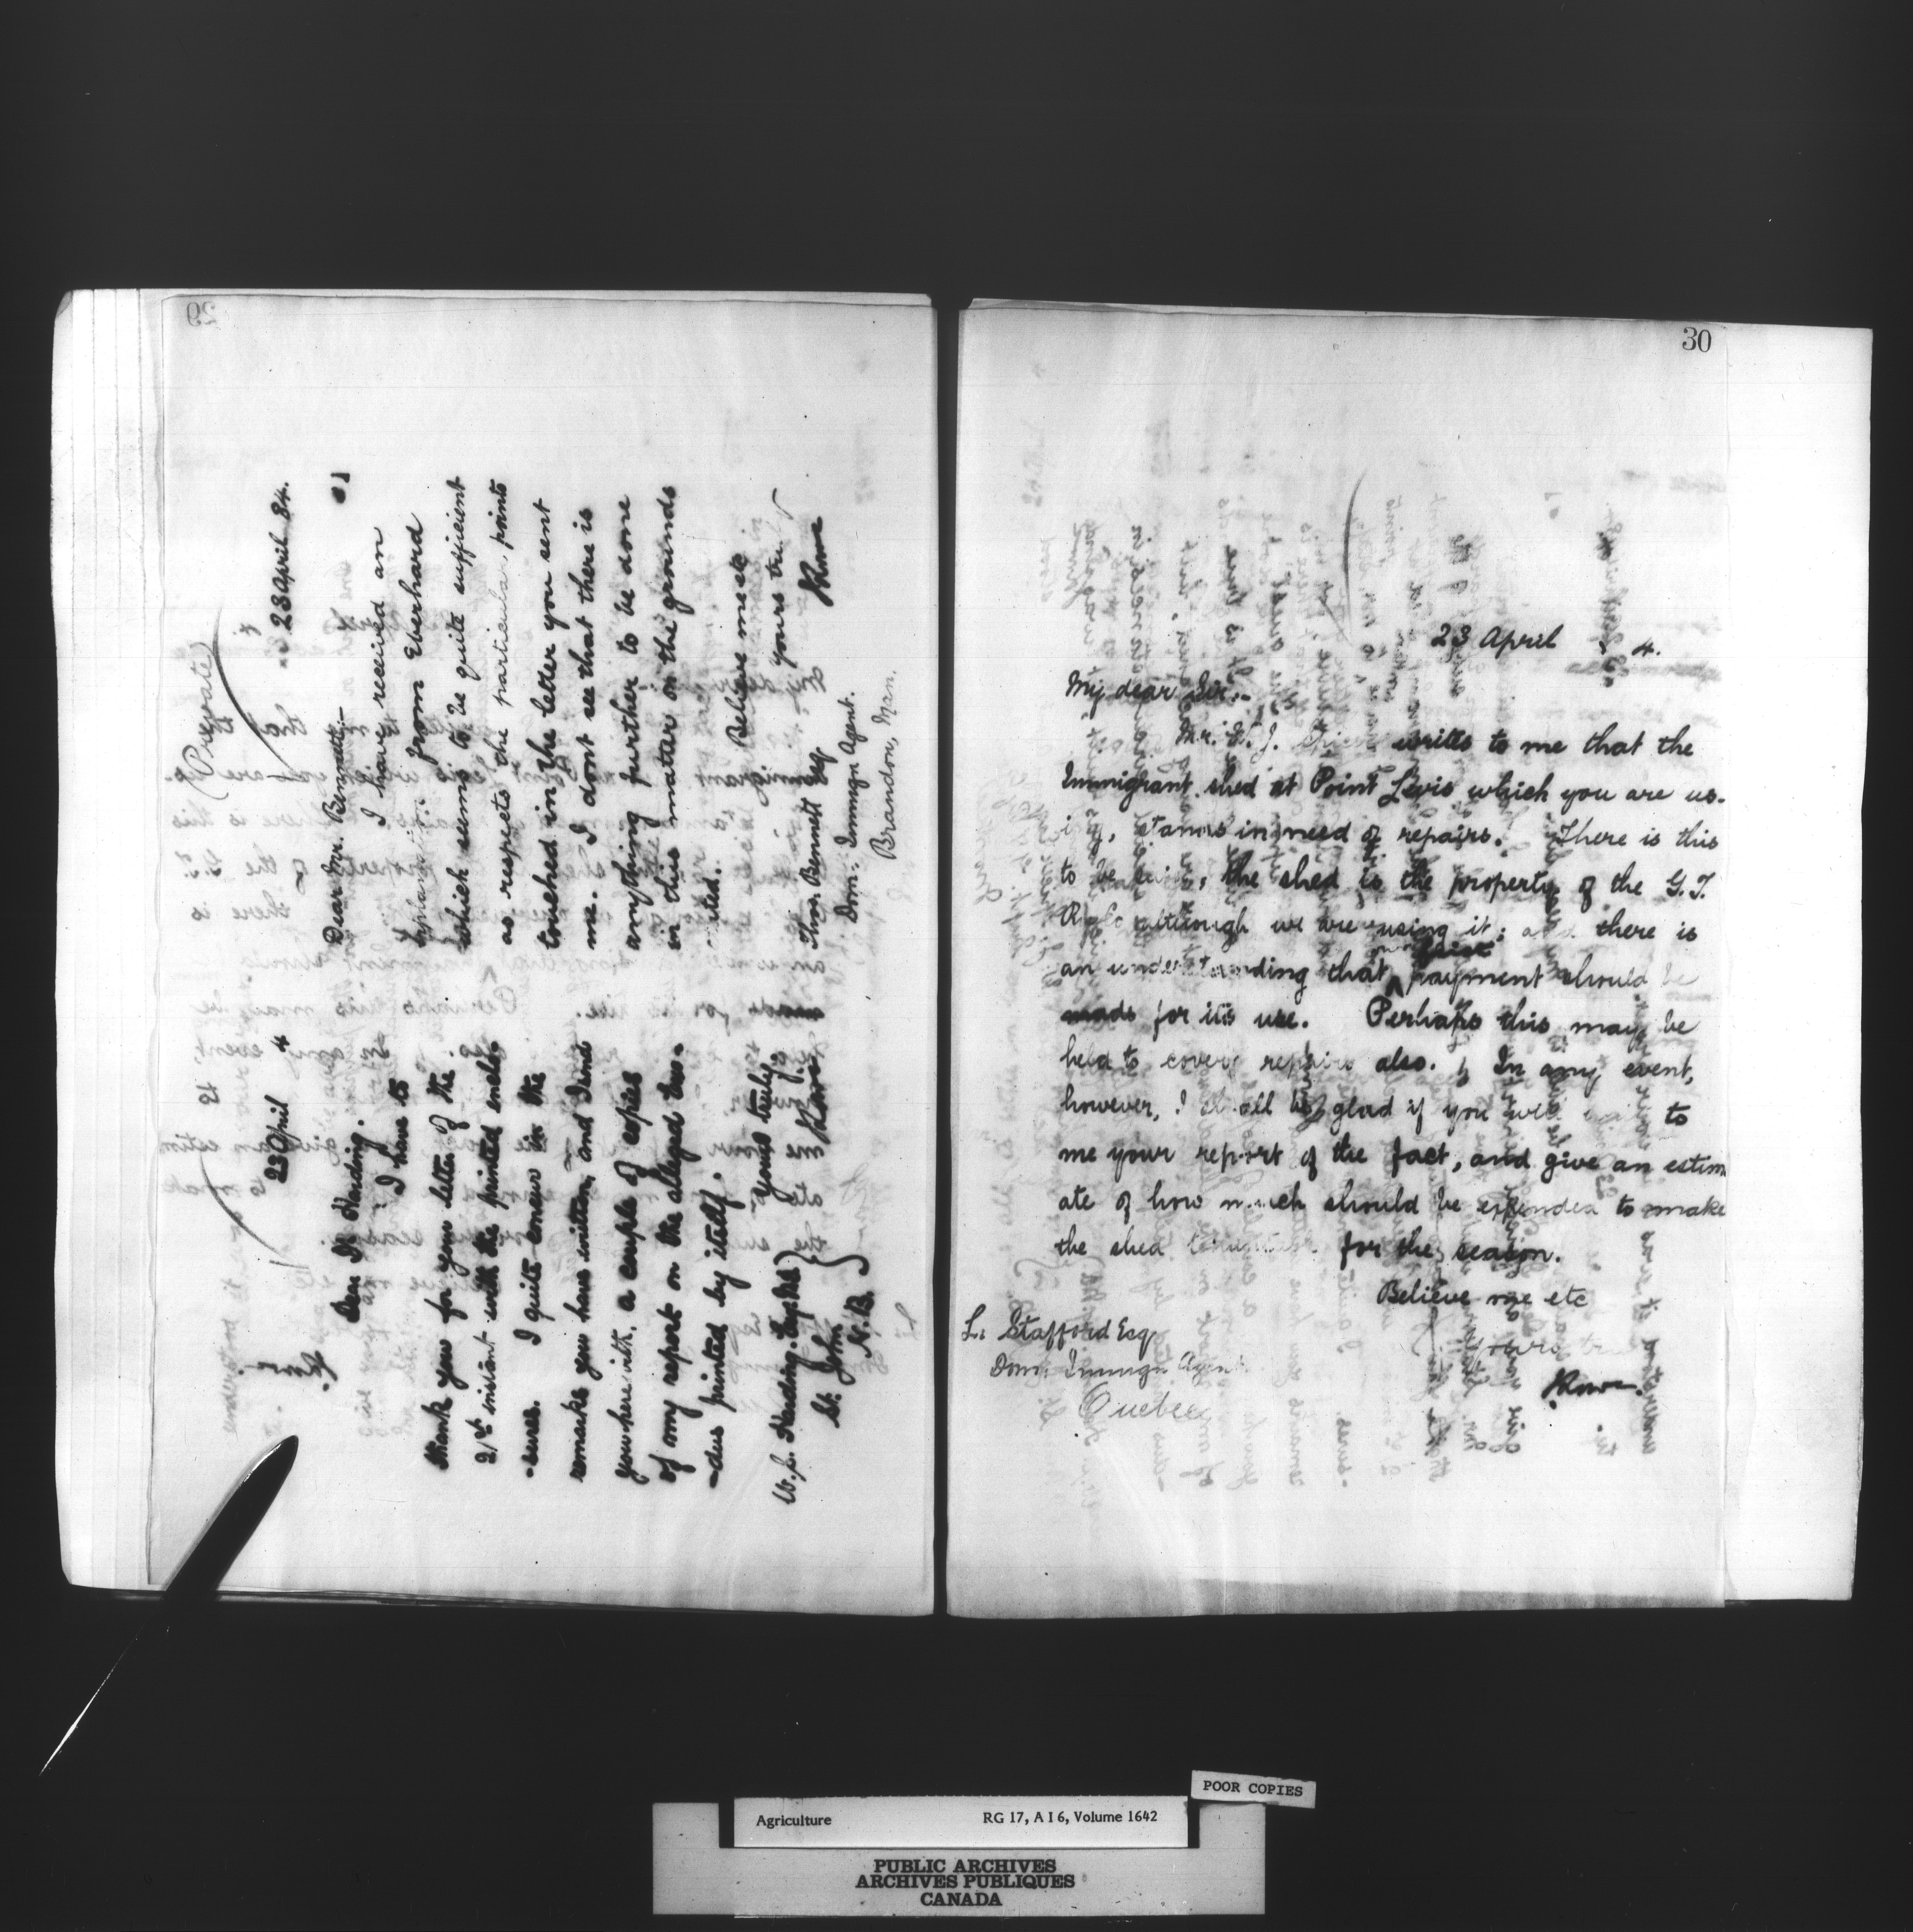 29
(Private)
23 April 84.
Dear Mr. Bennett:—
I have received an
from Eberhard
which seems to be quite sufficient
as respects the particular points
touched in the letter you sent
me. I dont see that there is
anything further to be done
in this matter on the grounds
Believe me etc
yours truly
Thos. Bennett Esq
Dom: Immgn Agent.
Brandon, Man.
23 April 4
Dear Dr Harding.
I have to
thank you for your letter of the
21st instant with the printed enclo-
-sures. I quite concur in the
remarks you have written, and I send
you herewith, a couple of copies
of my report on the alleged
-dus printed by itself.
yours truly
W. S. Harding. Esq. Md
St. John
N.B.
30
23 April 4.
My dear Sir:-
Mr. writes to me that the
Immigrant shed at Point Levis which you are us-
ing, stands in need of repairs. There is this
to be said, the shed is the property of the G. T.
although we are using it; and there is
an understanding that payment should be
made for its use. Perhaps this may be
held to cover repairs also. In any event,
however, I shall be glad if you will to
me your report of the fact, and give an estim
ate of how much should be expended to make
the shed for the season.
Believe me etc
yours tru
L. Stafford Esq
Dom: Immgn Agent
Quebec
POOR COPIES
Agriculture RG 17, A I 6, Volume 1642
PUBLIC ARCHIVES
ARCHIVES PUBLIQUES
CANADA